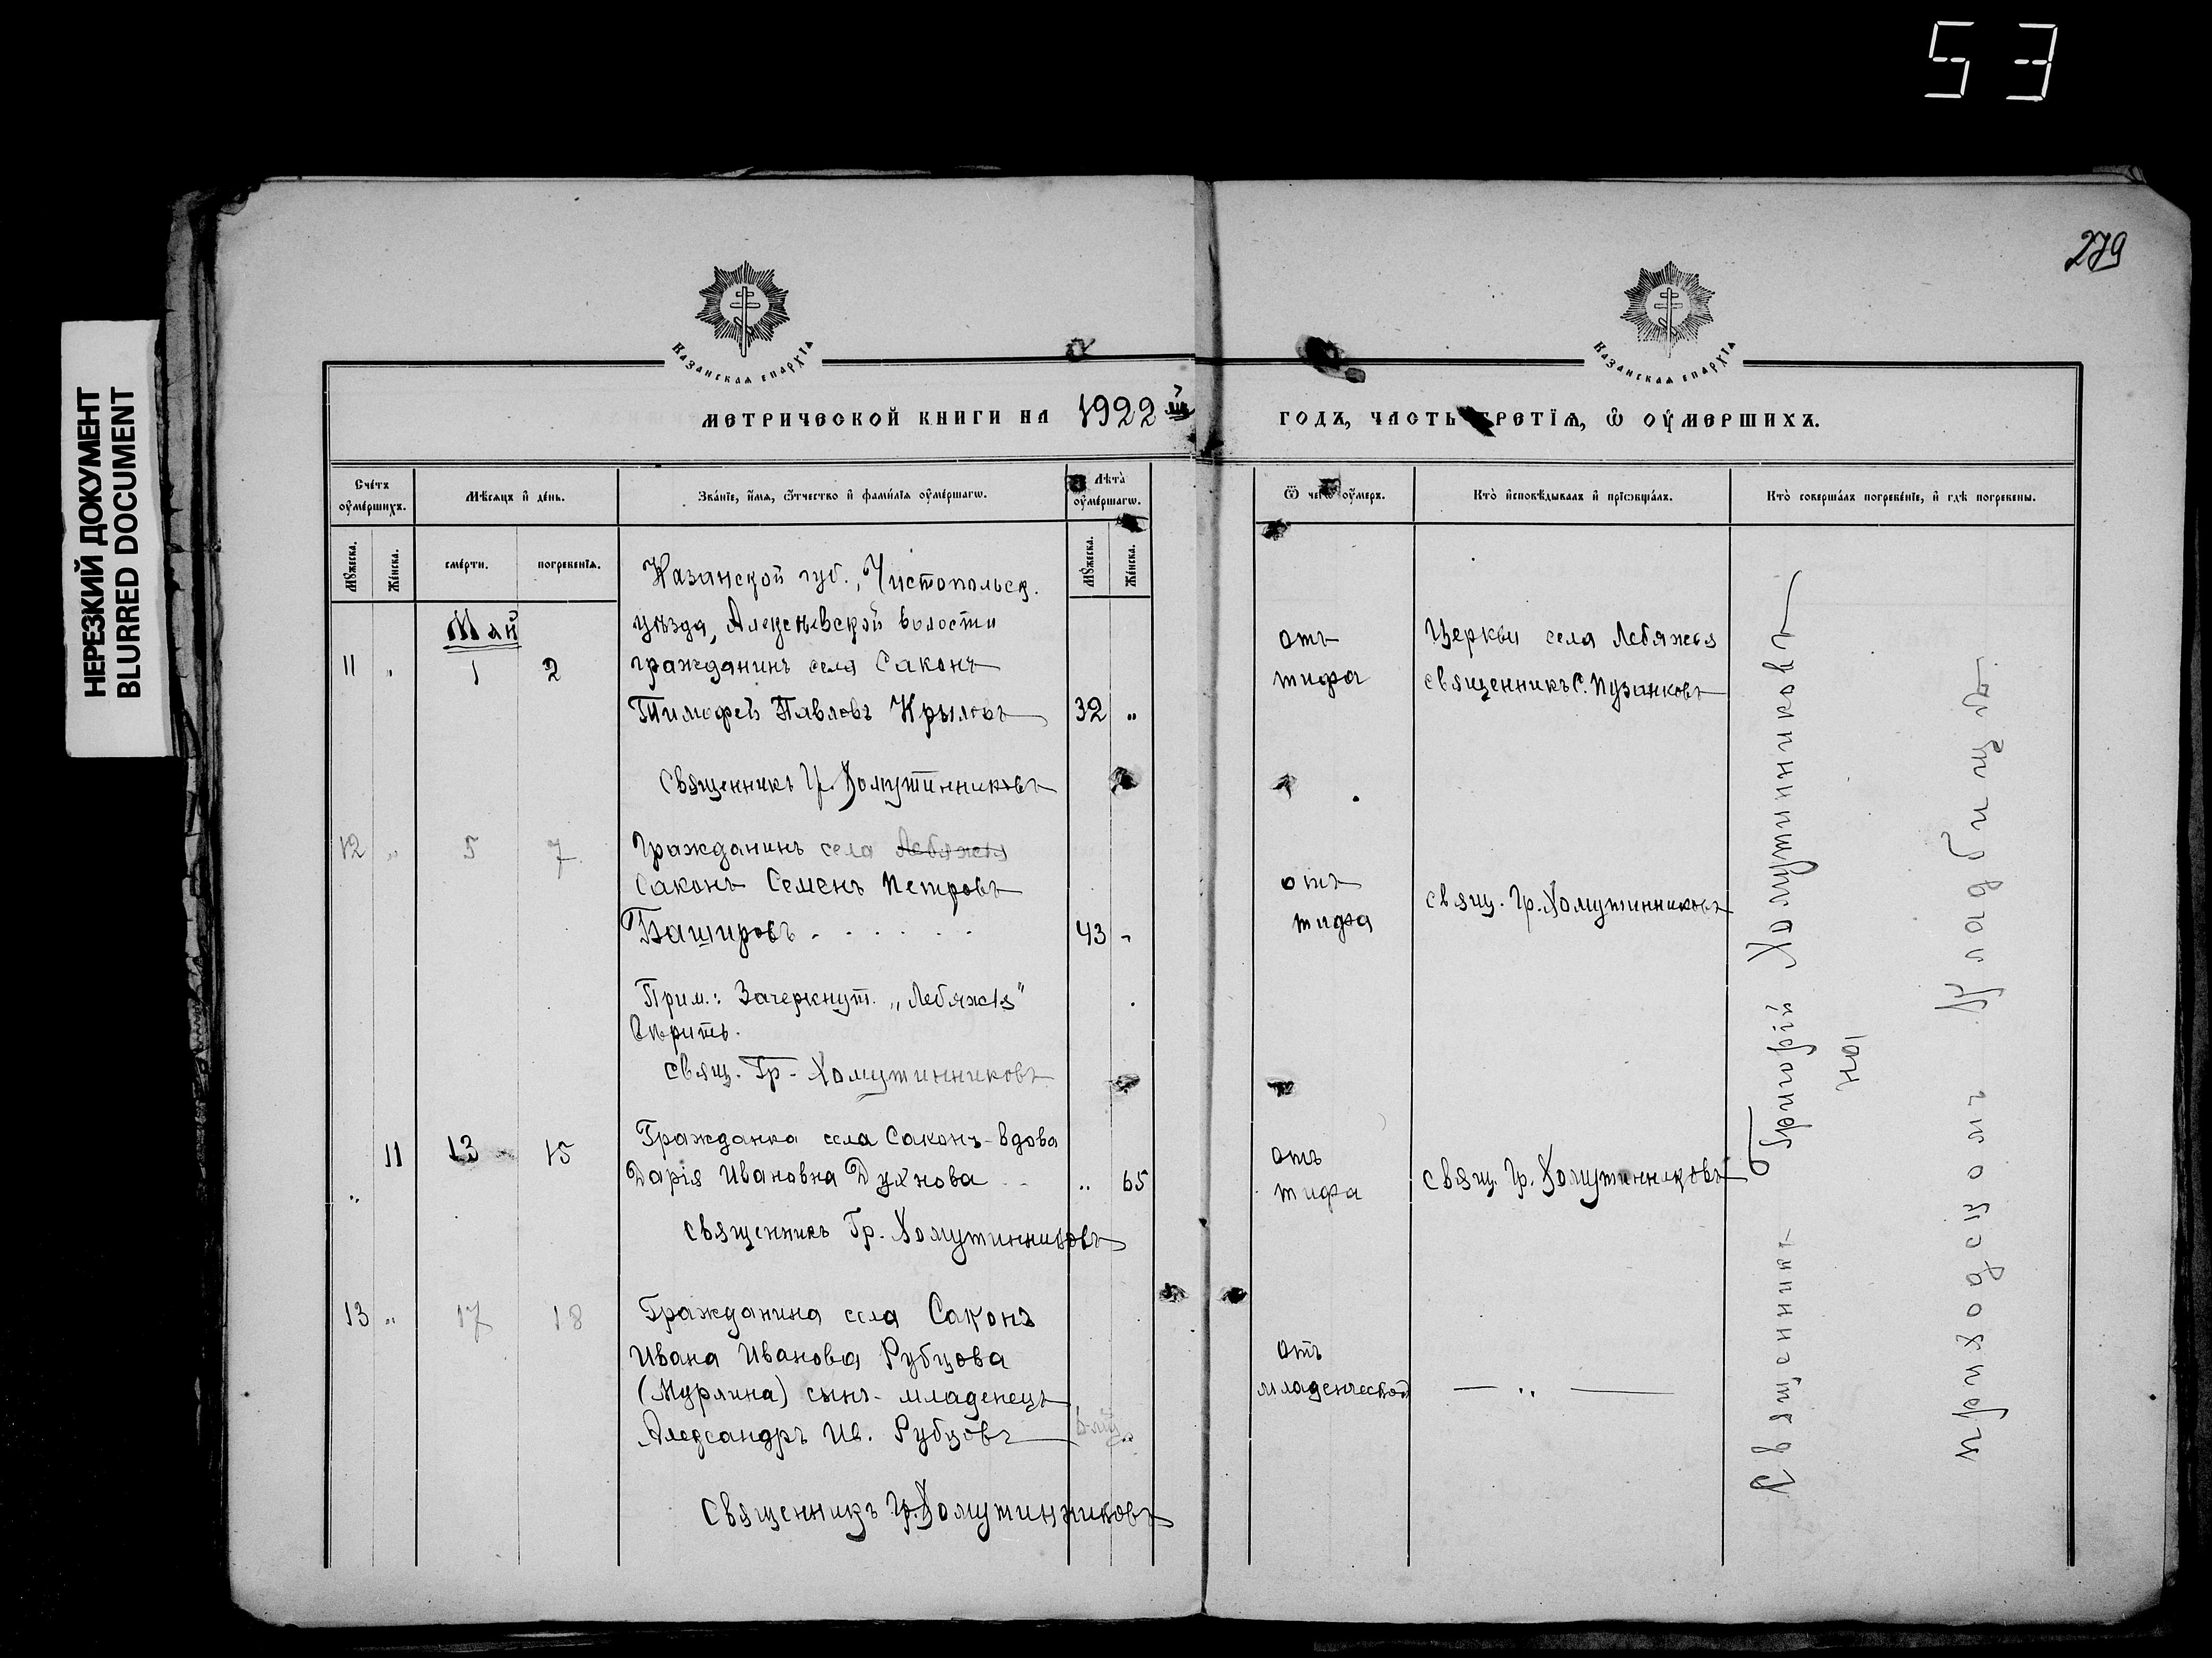 53
НЕРЕЗКИЙ ДОКУМЕНТ
BLURRED DOCUMENT
279
КАЗАНСКАѦ ЕПАРХІА
КАЗАНСКАѦ ЕПАРХІА
МЕТРИЧЕСКОЙ КНИГИ НА 1922й ГОДЪ, ЧАСТЬ ТРЕТІѦ, Ѿ ОУМЕРШИХЪ.
Счетъ оумершихъ.
Мѣсяцъ и день.
Званіе, имѧ, ѿтчество и фамиліѧ оумершагѡ.
Лѣта оумершагѡ.
Ѿ чегѡ оумеръ.
Кто исповѣдывалъ и пріобщалъ.
Кто совершалъ погребеніе, и гдѣ погребены.
Мужеска.
Женска.
смерти.
погребеніѧ.
Мужеска.
Женска.
Казанской губ., Чистопольск.
Май
уѣзда, Алексѣевской волости
11 " 1 2 гражданинъ села Саконъ
Тимофей Павловъ Крыловъ 32 "
отъ
тифа
Церкви села Лебяжья
священникъ С. Пузанковъ
Священникъ Гр. Хомутинниковъ
12 " 5 7 Гражданинъ села Лебяжья
Саконъ Семенъ Петровъ
Башировъ . . . . . . 43 "
отъ
тифа
свящ. Гр. Хомутинниковъ
Прим.: Зачеркнут. „Лебяжья"
вѣрить.
свящ. Гр. Хомутинниковъ
" 11 13 15 Гражданка села Саконъ-вдова
Дарія Ивановна Духнова .. " 65
отъ
тифа
свящ. Гр. Хомутинниковъ
Священникъ Гр. Хомутинниковъ
13 " 17 18 Гражданина села Саконъ
Ивана Иванова Рубцова
(Мурлина) сынъ-младенецъ
Александръ Ив. Рубцовъ "
отъ
младенческой
— " —
Священникъ Гр. Хомутинниковъ
Священникъ Григорій Хомутинниковъ
на
приходскомъ кладбищѣ.